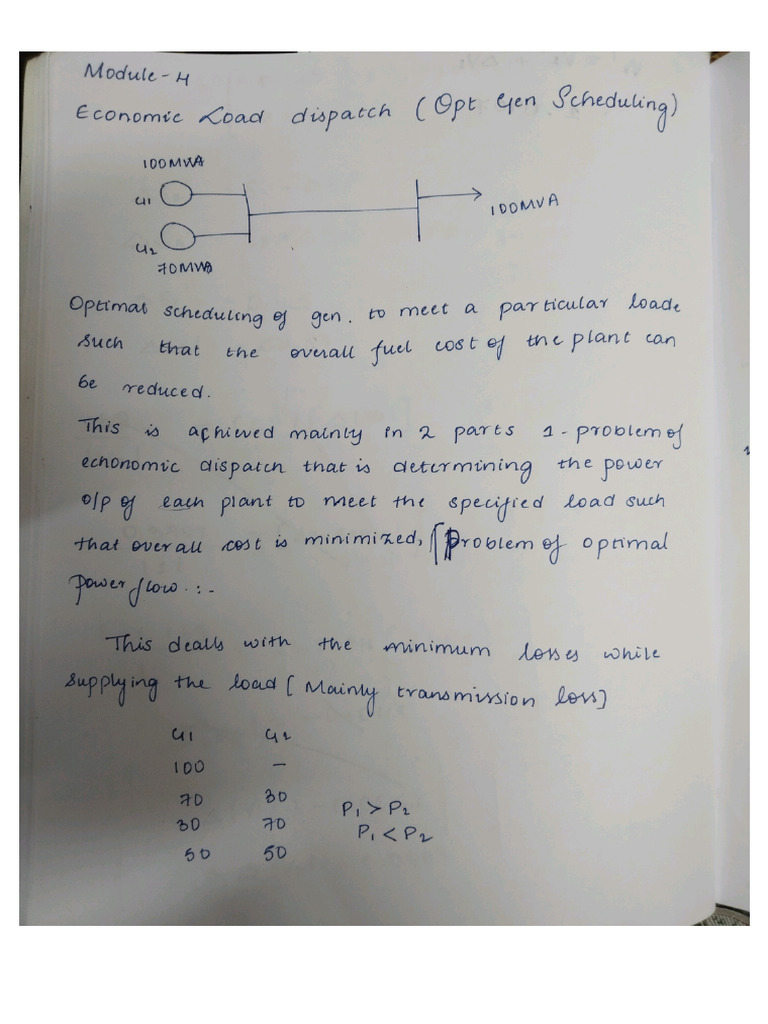 Module-4
Economic Load dispatch (Opt Gen Scheduling)
100MVA
G1
100MVA
G2
70MVA
Optimal scheduling of gen. to meet a particular loade
such that the overall fuel cost of the plant can
be reduced.
This is achieved mainly in 2 parts 1-problem of
echonomic dispatch that is determining the power
o/p of each plant to meet the specified load such
that overall cost is minimized, [Problem of optimal
power flow.:-
This dealls with the minimum losses while
supplying the load [Mainly transmission loss]
G1 G2
100 —
70 30
P1 > P2
30 70
P1 < P2
50 50